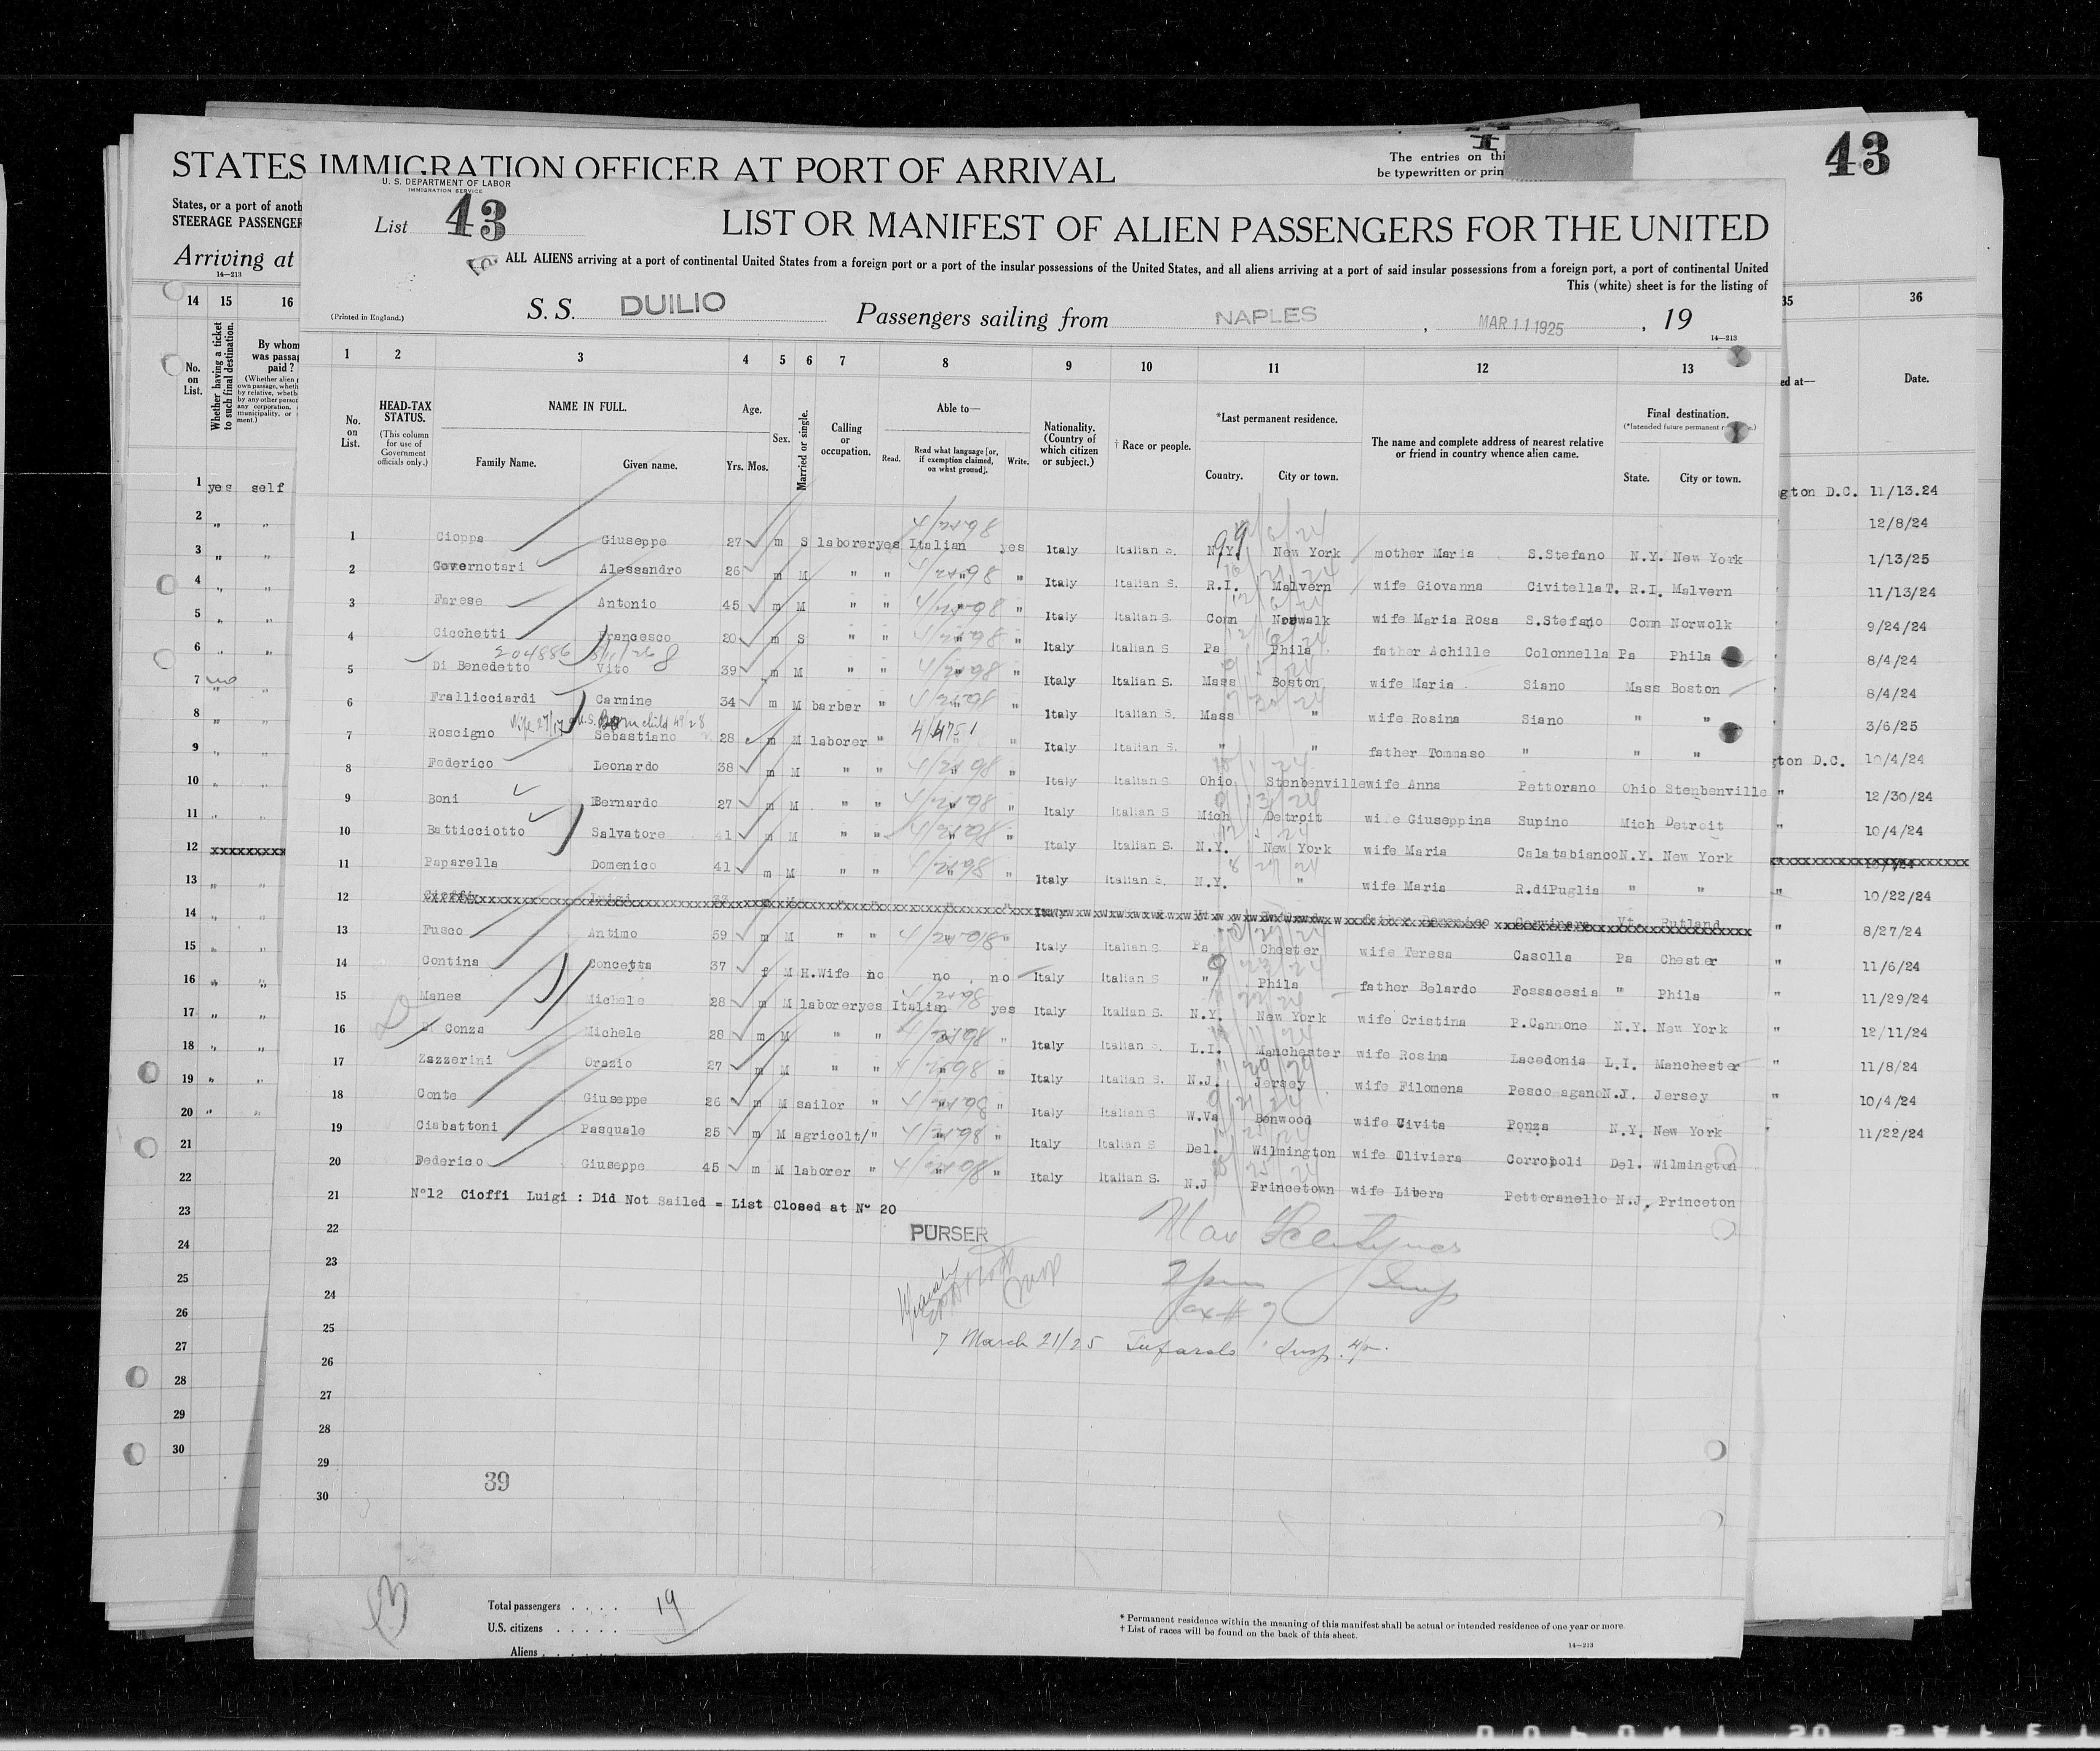 STATES IMMIGRATION OFFICER AT PORT OF ARRIVAL
The entries on thi
be typewritten or prin
43
States, or a port of anoth
STEERAGE PASSENGER
Arriving at
14—213
14 15 16
35 36
No. on List.
Whether having a ticket to such final destination.
By whom was passag paid?
ed at— Date.
U. S. DEPARTMENT OF LABOR
IMMIGRATION SERVICE
List 43
LIST OR MANIFEST OF ALIEN PASSENGERS FOR THE UNITED
ALL ALIENS arriving at a port of continental United States from a foreign port or a port of the insular possessions of the United States, and all aliens arriving at a port of said insular possessions from a foreign port, a port of continental United
This (white) sheet is for the listing of
(Printed in England.)
S. S. DUILIO Passengers sailing from NAPLES , MAR 11 1925 , 19
14—213
1 2 3 4 5 6 7 8 9 10 11 12 13
No. on List.
HEAD-TAX STATUS.
(This column for use of Government officials only.)
NAME IN FULL.
Family Name. Given name.
Age.
Yrs. Mos.
Sex.
Married or single.
Calling or occupation.
Able to—
Read. Read what language [or, if exemption claimed, on what ground]. Write.
Nationality. (Country of which citizen or subject.)
† Race or people.
*Last permanent residence.
Country. City or town.
The name and complete address of nearest relative or friend in country whence alien came.
Final destination.
State. City or town.
1 Cioppa Giuseppe 27 m S laborer yes Italian yes Italy Italian S. N.Y. New York mother Maria S.Stefano N.Y. New York
2 Governotari Alessandro 26 m M " " " " Italy Italian S. R.I. Malvern wife Giovanna CivitellaT. R.I. Malvern
3 Farese Antonio 45 m M " " " " Italy Italian S. Conn Norwalk wife Maria Rosa S.Stefano Conn Norwolk
4 Cicchetti Francesco 20 m S " " " " Italy Italian S. Pa Phila father Achille Colonnella Pa Phila
204886
5 Di Benedetto Vito 39 m M " " " " Italy Italian S. Mass Boston wife Maria Siano Mass Boston
6 Frallicciardi Carmine 34 m M barber " " " Italy Italian S. Mass " wife Rosina Siano " "
7 Roscigno Sebastiano 28 m M laborer " " " Italy Italian S. " " father Tommaso " " "
8 Federico Leonardo 38 m M " " " " Italy Italian S Ohio Stenbenville wife Anna Pettorano Ohio Stenbenville
9 Boni Bernardo 27 m M " " " " Italy Italian S Mich Detroit wife Giuseppina Supino Mich Detroit
10 Batticciotto Salvatore 41 m M " " " " Italy Italian S. N.Y. New York wife Maria Calatabianco N.Y. New York
11 Paparella Domenico 41 m M " " " " Italy Italian S. N.Y. " wife Maria R.diPuglia " "
12 Cioffi Luigi father Domenico Vt. Rutland
13 Fusco Antimo 59 m M " " " " Italy Italian S Pa Chester wife Teresa Casolla Pa Chester
14 Contina Concetta 37 f M H.Wife no no no Italy Italian S " Phila father Belardo Fossacesia " Phila
15 Manes Michele 28 m M laborer yes Italian yes Italy Italian S. N.Y. New York wife Cristina P.Cannone N.Y. New York
16 Di Conza Michele 28 m M " " " " Italy Italian S. L.I. Manchester wife Rosina Lacedonia L.I. Manchester
17 Zazzerini Orazio 27 m M " " " " Italy Italian S. N.J. Jersey wife Filomena Pesco agano N.J. Jersey
18 Conte Giuseppe 26 m M sailor " " " Italy Italian S W.Va Benwood wife Civita Ponza N.Y. New York
19 Ciabattoni Pasquale 25 m M agricolt/ " " " Italy Italian S Del. Wilmington wife Oliviera Corropoli Del. Wilmington
20 Federico Giuseppe 45 m M laborer " " " Italy Italian S. N.J Princetown wife Libera Pettoranello N.J. Princeton
21 N°12 Cioffi Luigi : Did Not Sailed = List Closed at N° 20
22
PURSER
23
24
25
7 March 21/25
26
27
28
29
30
39
1 yes self
2 " "
3 " "
4 " "
5 " "
6 " "
7 no " "
8 " "
9 " "
10 " "
11 " "
12 xxxxxxxxx
13 " "
14 " "
15 " "
16 " "
17 " "
18 " "
19 " "
20 " "
21
22
23
24
25
26
27
28
29
30
gton D.C. 11/13.24
12/8/24
1/13/25
11/13/24
9/24/24
8/4/24
8/4/24
3/6/25
gton D.C. 10/4/24
" 12/30/24
" 10/4/24
" 10/22/24
" 8/27/24
" 11/6/24
" 11/29/24
" 12/11/24
" 11/8/24
" 10/4/24
" 11/22/24
Total passengers . . . . 19
U.S. citizens . . . . .
Aliens . . . . . .
* Permanent residence within the meaning of this manifest shall be actual or intended residence of one year or more.
† List of races will be found on the back of this sheet.
14—213